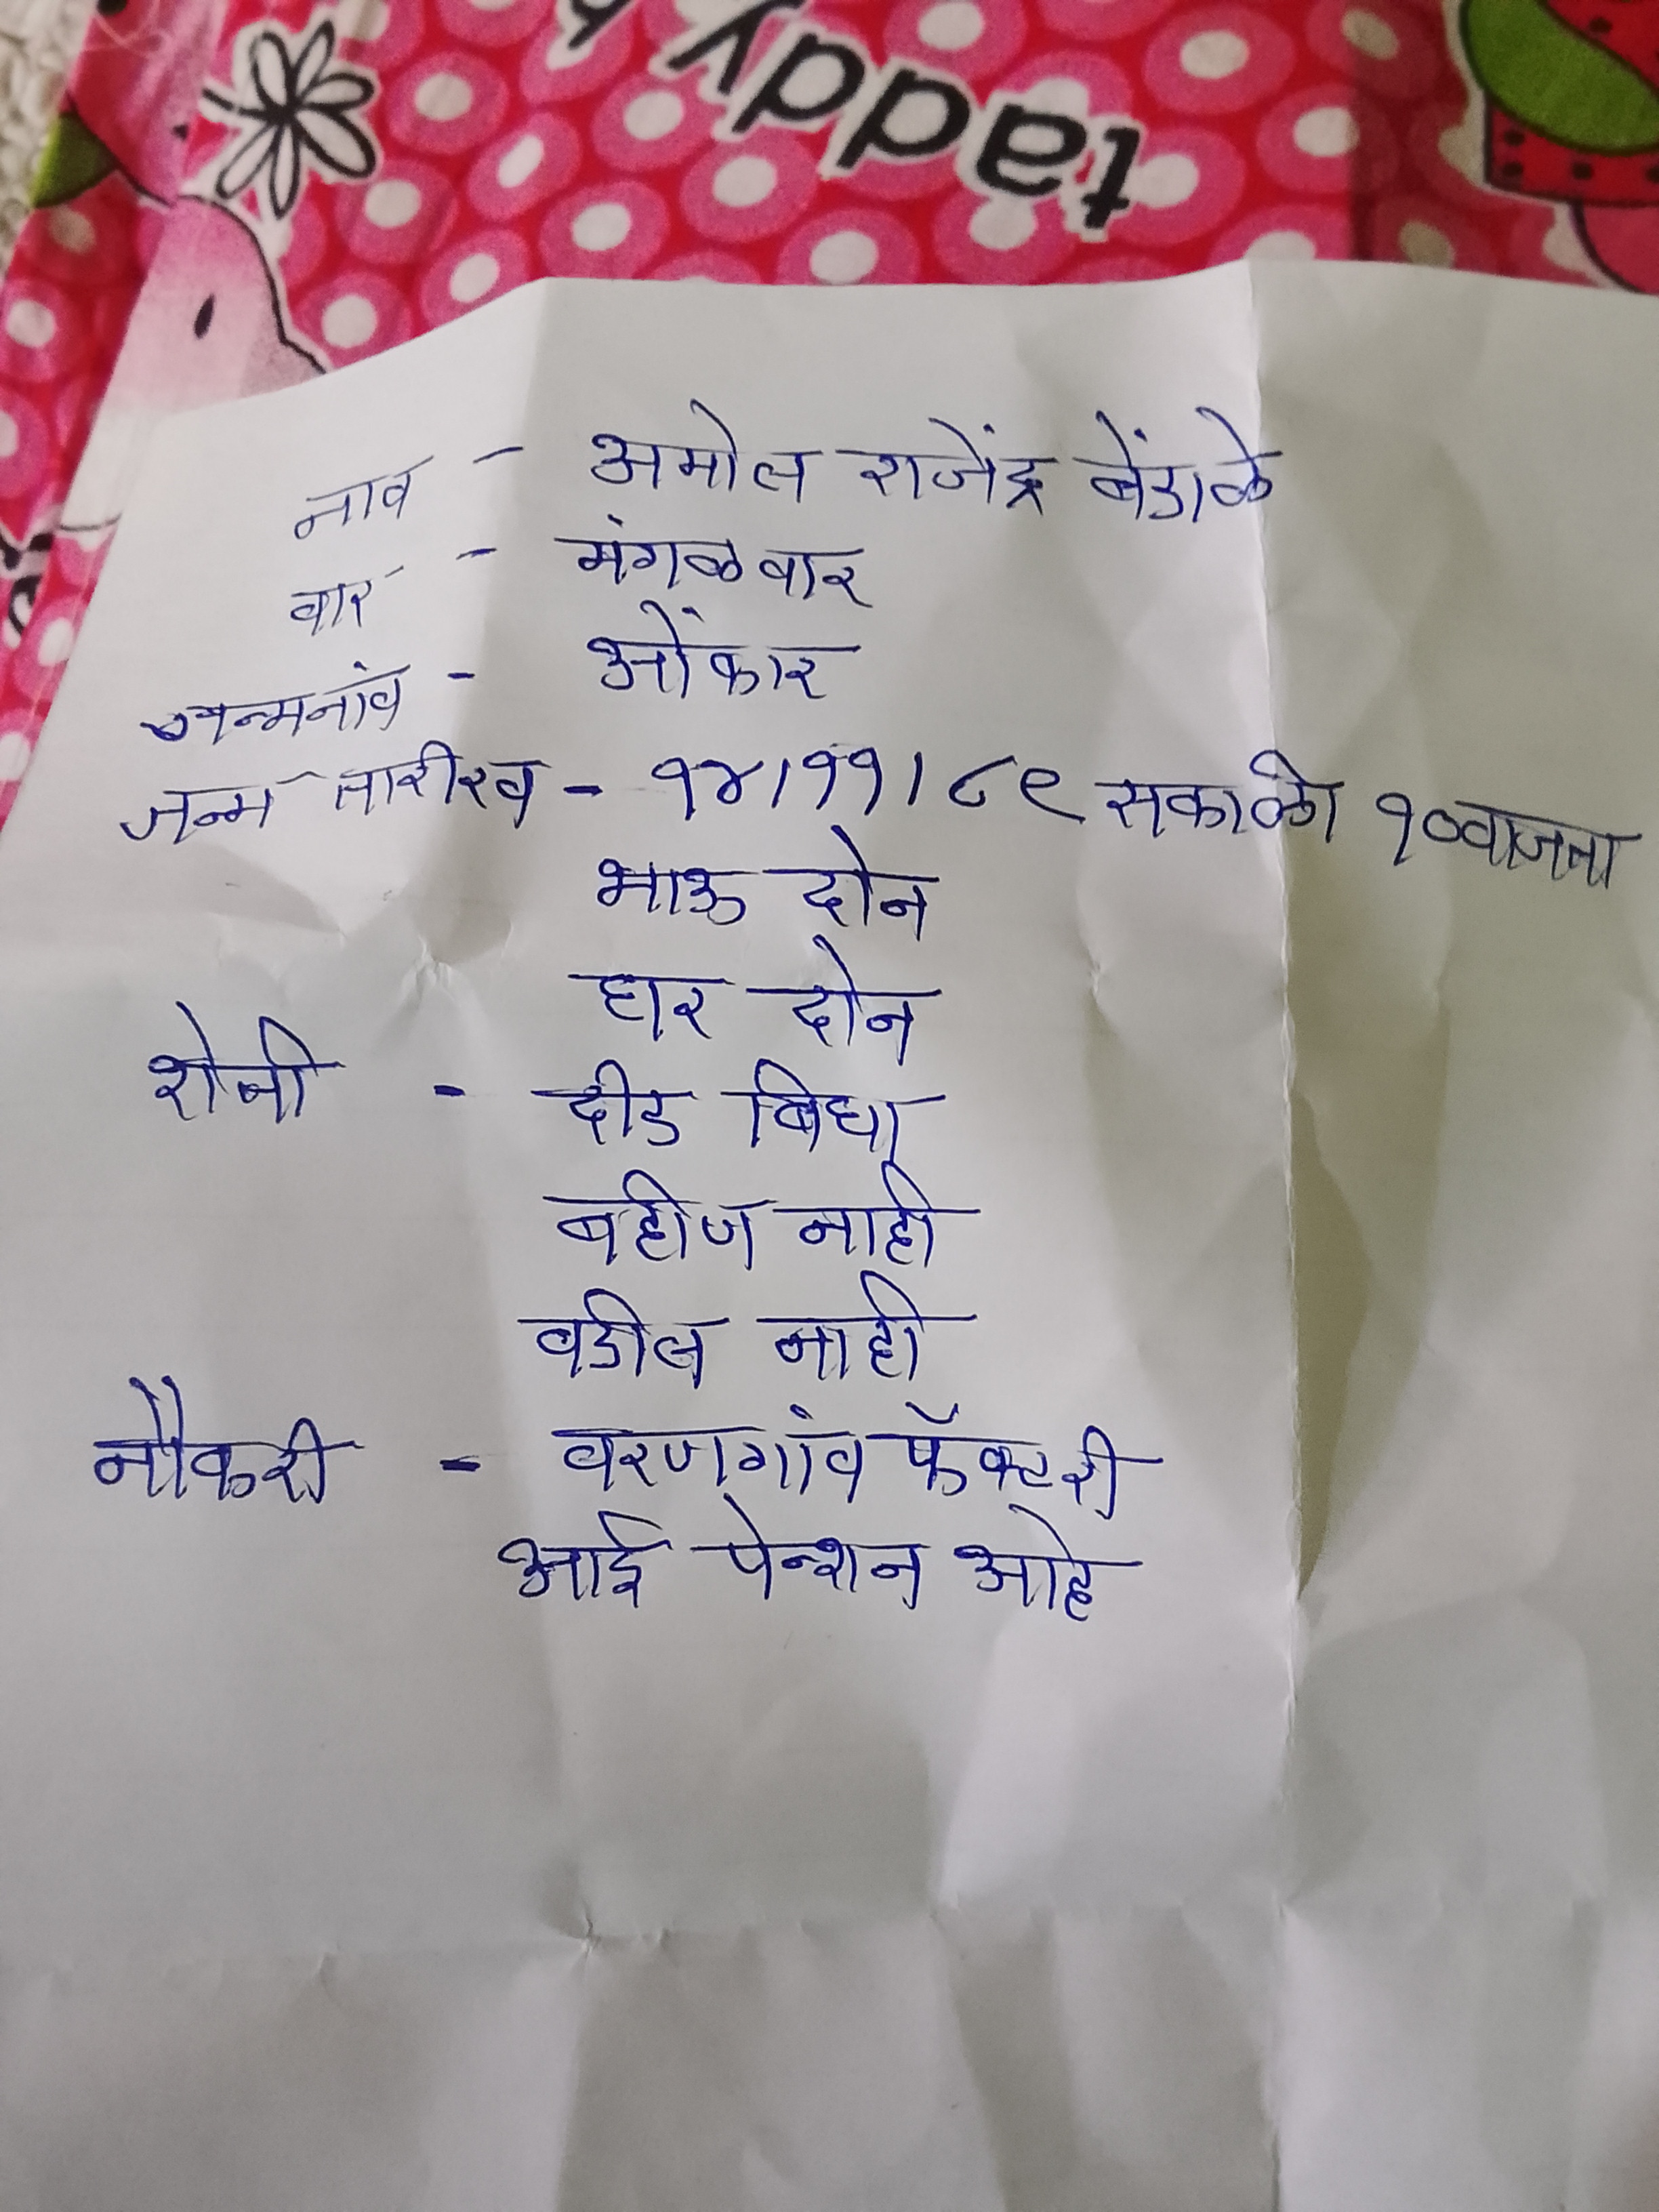 taddy
नाव - अमोल राजेंद्र बेंडाळे
वार - मंगळवार
जन्मनांव - ओंकार
जन्म तारीख - १४।११।८९ सकाळी १०वाजता
भाऊ दोन
घर दोन
शेती - दीड बिघा
बहीण नाही
वडील नाही
नौकरी - वरणगांव फॅक्टरी
आई पेन्शन आहे